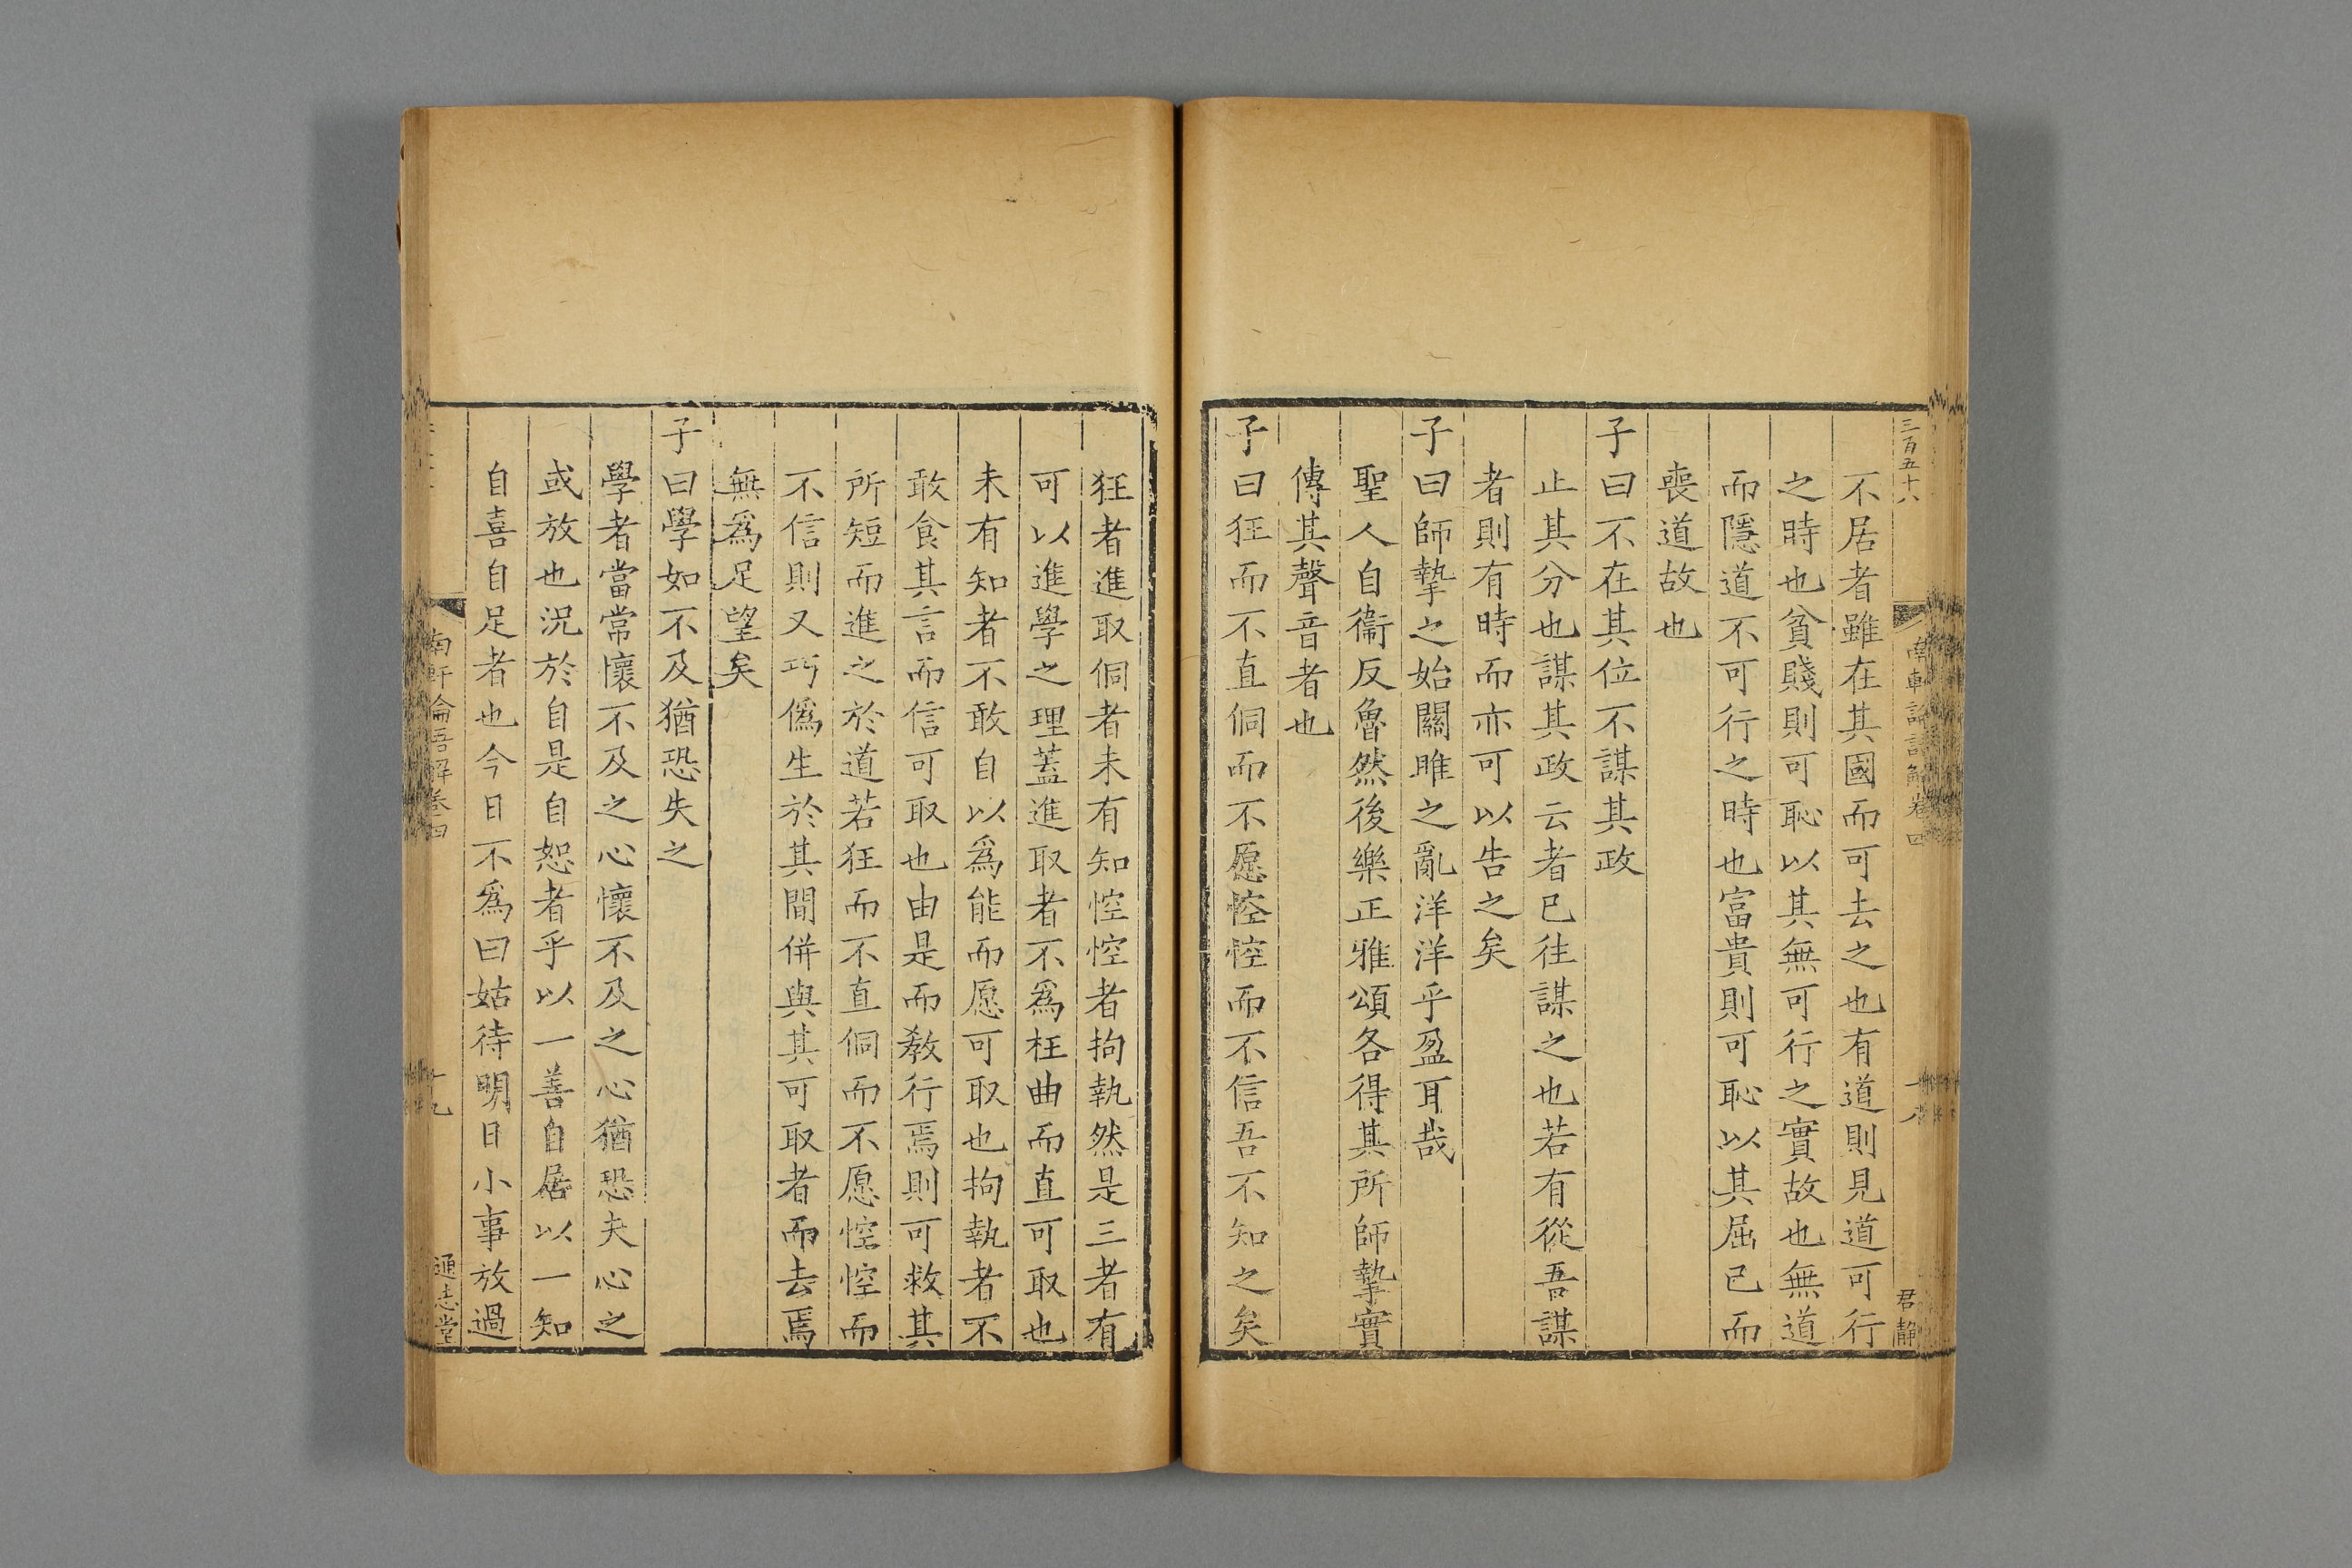 三百五十八
南軒論語解卷四
君靜
不居者雖在其國而可去之也有道則見道可行
之時也貧賤則可恥以其無可行之實故也無道
而隱道不可行之時也富貴則可恥以其屈已而
喪道故也
子曰不在其位不謀其政
止其分也謀其政云者已往謀之也若有從吾謀
者則有時而亦可以告之矣
子曰師摯之始關雎之亂洋洋乎盈耳哉
聖人自衞反魯然後樂正雅頌各得其所師摯實
傳其聲音者也
子曰狂而不直侗而不愿悾悾而不信吾不知之矣
狂者進取侗者未有知悾悾者拘執然是三者有
可以進學之理蓋進取者不爲枉曲而直可取也
未有知者不敢自以爲能而愿可取也拘執者不
敢食其言而信可取也由是而敎行焉則可救其
所短而進之於道若狂而不直侗而不愿悾悾而
不信則又巧僞生於其間併與其可取者而去焉
無爲足望矣
子曰學如不及猶恐失之
學者當常懷不及之心懷不及之心猶恐夫心之
或放也況於自是自恕者乎以一善自居以一知
自喜自足者也今日不爲曰姑待明日小事放過
南軒論語解卷四
十九
通志堂